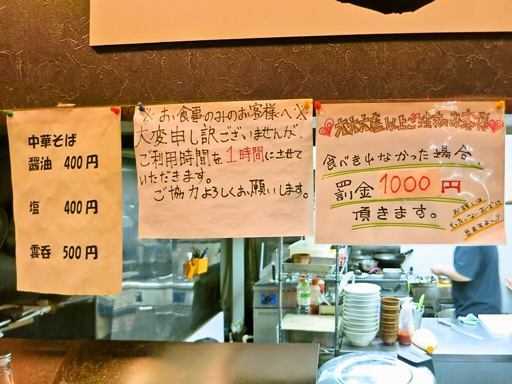 中華そば
醤油 400円
塩 400円
雲呑 500円
※お食事のみのお客様へ※
大変申し訳ございませんが
ご利用時間を1時間にさせて
いただきます。
ご協力よろしくお願いします。
食べきれなかった場合、
罰金1000円
頂きます。